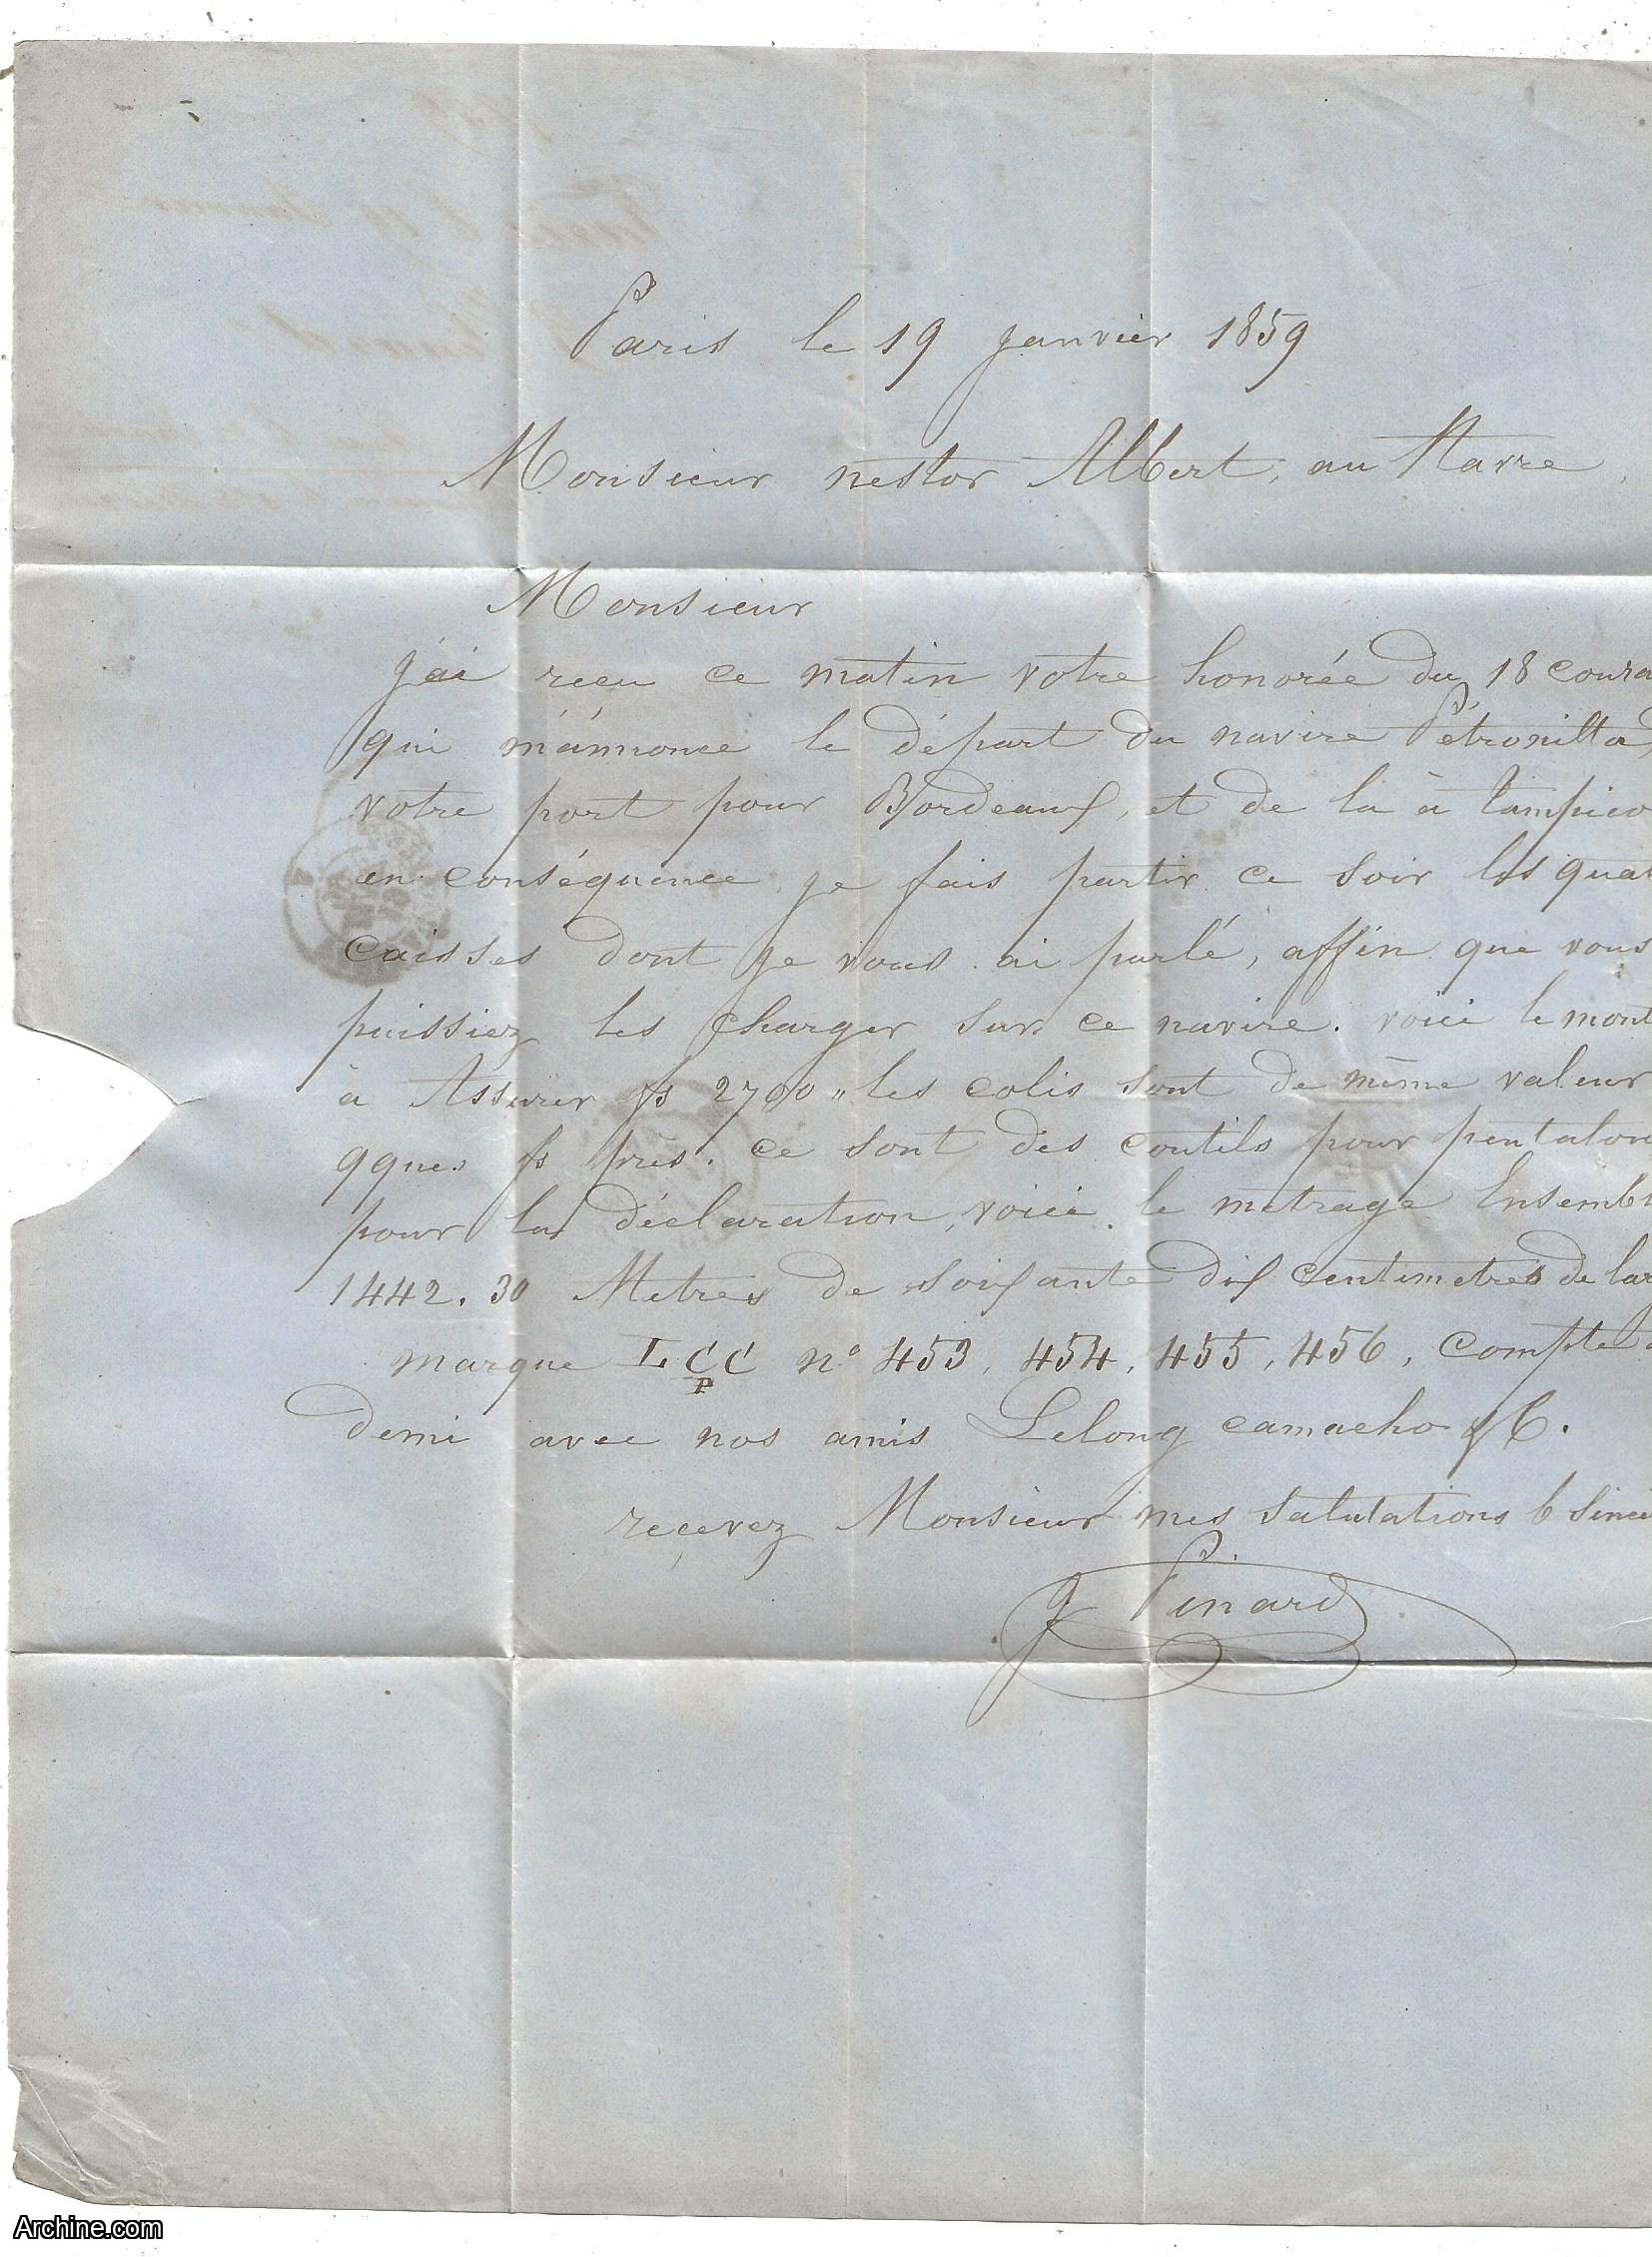 Paris le 19 janvier 1859
Monsieur nestor Albert, au Havre
Monsieur
j'ai recu ce matin votre honorée du 18 coura
qui m'annonce le départ du navire Pétronilla,
votre port pour Bordeaux, et de la à tampico
en conséquence je fais partir ce soir les quat
caisses dont je vous ai parlé, affin que vous
puissiez les charger sur ce navire. voici le mont
à Assurer fs 2700 " les colis sont de même valeur
qques fs près. ce sont des coutils pour pentalon
pour la déclaration, voici le métrage Ensembl
1442.30 Metres de soixante dix centimetres de lar
marque LCC n° 453, 454, 455, 456, compte
P
demi avec nos amis Lelong camacho & C.
reçevez Monsieur mes salutations b sincè
J Pinard
Archine.com